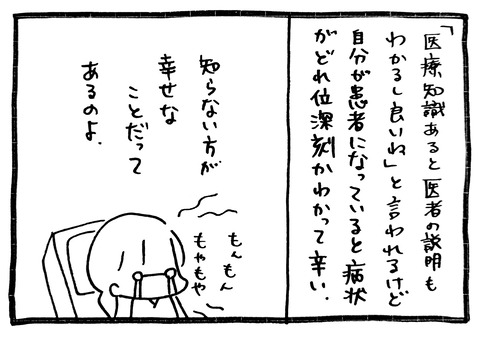 「医療知識あると医者の説明も
わかるし良いね」と言われるけど
自分が患者になっていると病状
がどれ位深刻かわかって辛い.
知らない方が
幸せな
ことだって
あるのよ.
もんもん
もやもや